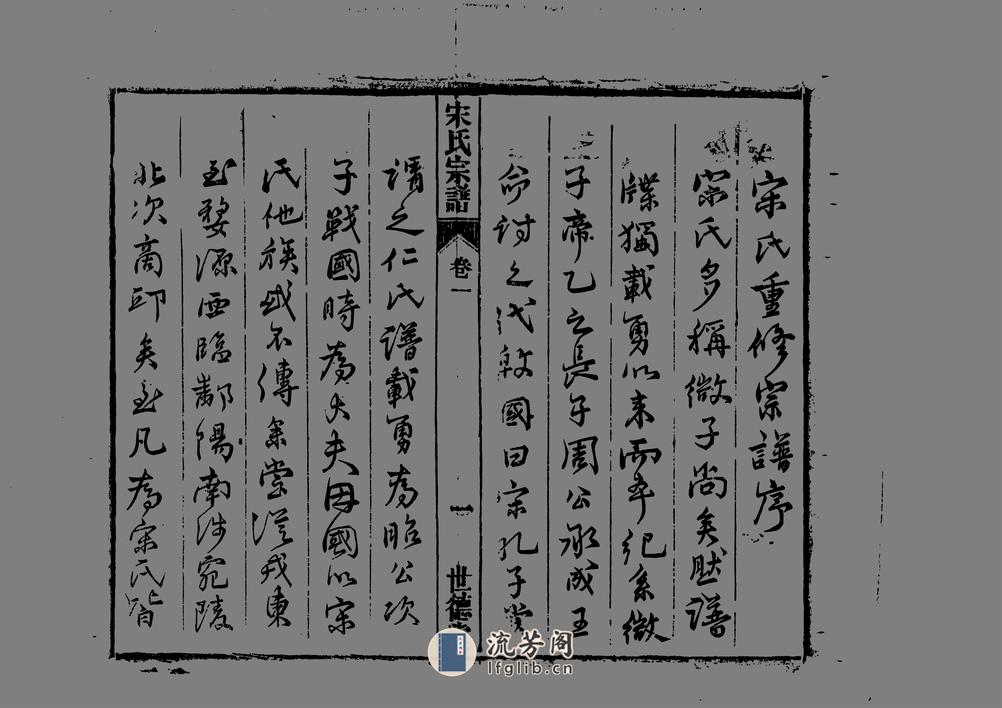 宋氏重修宗譜序
宋氏多稱微子尚矣然譜
牒獨載勇以来而卒紀系微
子帝乙之長子周公承成王
命討之代殷國曰宋孔子嘗
謂之仁氏譜載勇為昭公次
子戰國時為大夫因國以宋
氏他族或不傳余嘗從戎東
至婺源西臨鄱陽南涉宛陵
北次商邱矣至凡為宋氏皆
宋氏宗譜
卷一
一
世德
流芳阁
lfglib.cn